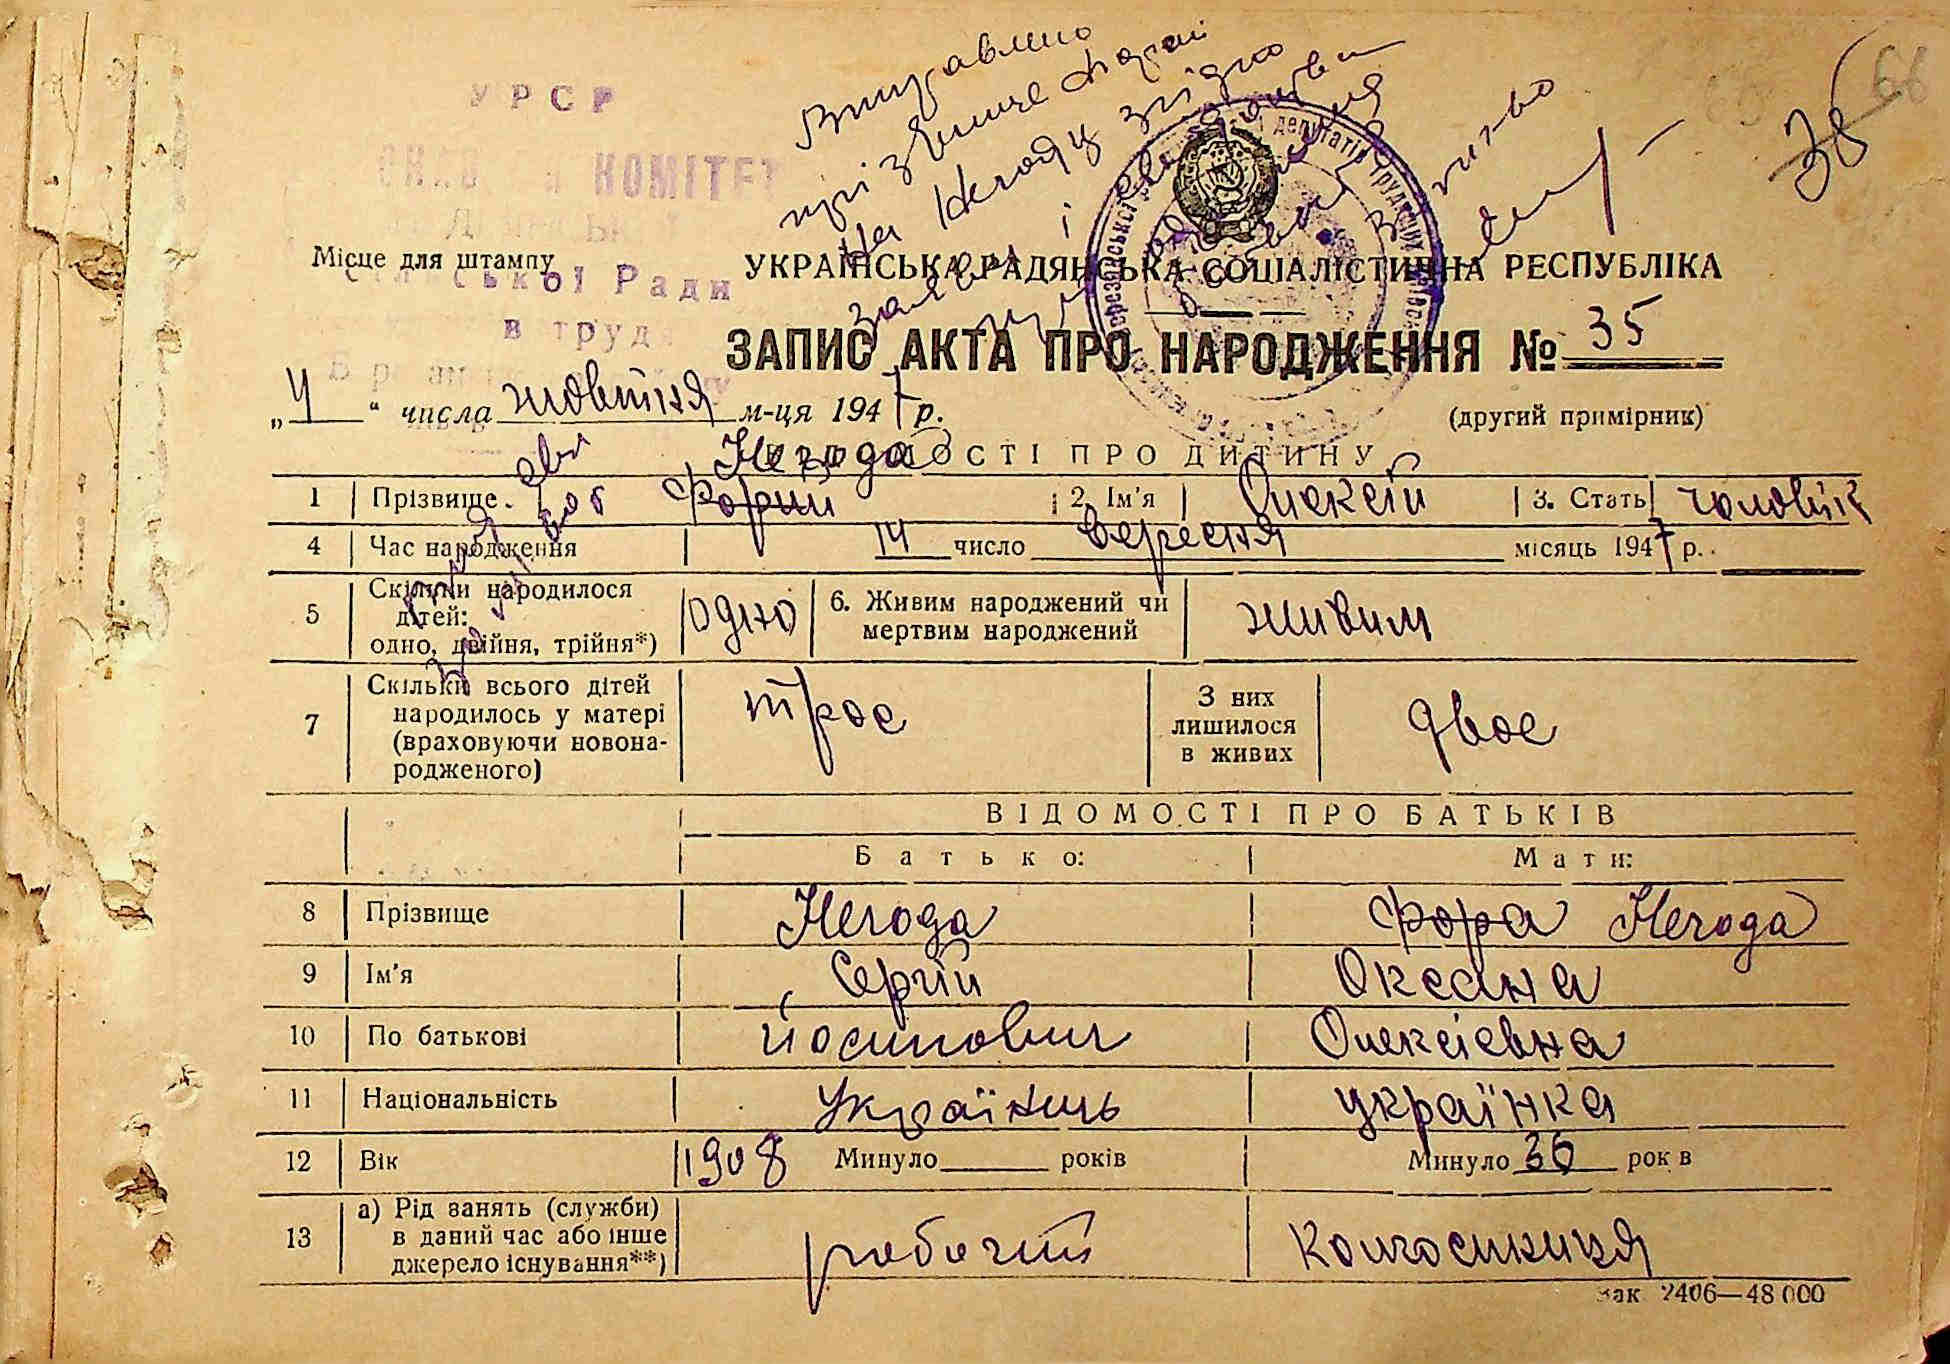 Виправлено
прізвище Форай
на Негоду згідно
заяви і
УРСР
КОМІТЕТ
сільської Ради
в труд
Місце для штампу
УКРАЇНСЬКА РАДЯНСЬКА СОЦІАЛІСТИЧНА РЕСПУБЛІКА
ЗАПИС АКТА ПРО НАРОДЖЕННЯ № 35
„4“ числа жовтня м-ця 1947 р.
(другий примірник)
38
66
ВІДОМОСТІ ПРО ДИТИНУ
Негода
1 Прізвище. Форий 2. Ім'я Олексій 3. Стать чоловік
4 Час народження 14 число Вересня місяць 1947 р.
5 Скільки народилося дітей: одно, двійня, трійня*) одно 6. Живим народжений чи мертвим народжений живим
7 Скільки всього дітей народилось у матері (враховуючи новонародженого) троє З них лишилося в живих двоє
ВІДОМОСТІ ПРО БАТЬКІВ
Батько: Мати:
8 Прізвище Негода Фора Негода
9 Ім'я Сергій Оксана
10 По батькові Йосипович Олексієвна
11 Національність Українець українка
12 Вік 1908 Минуло років Минуло 36 рок в
13 а) Рід занять (служби) в даний час або інше джерело існування**) робочий колгоспниця
Зак 2406—48 000